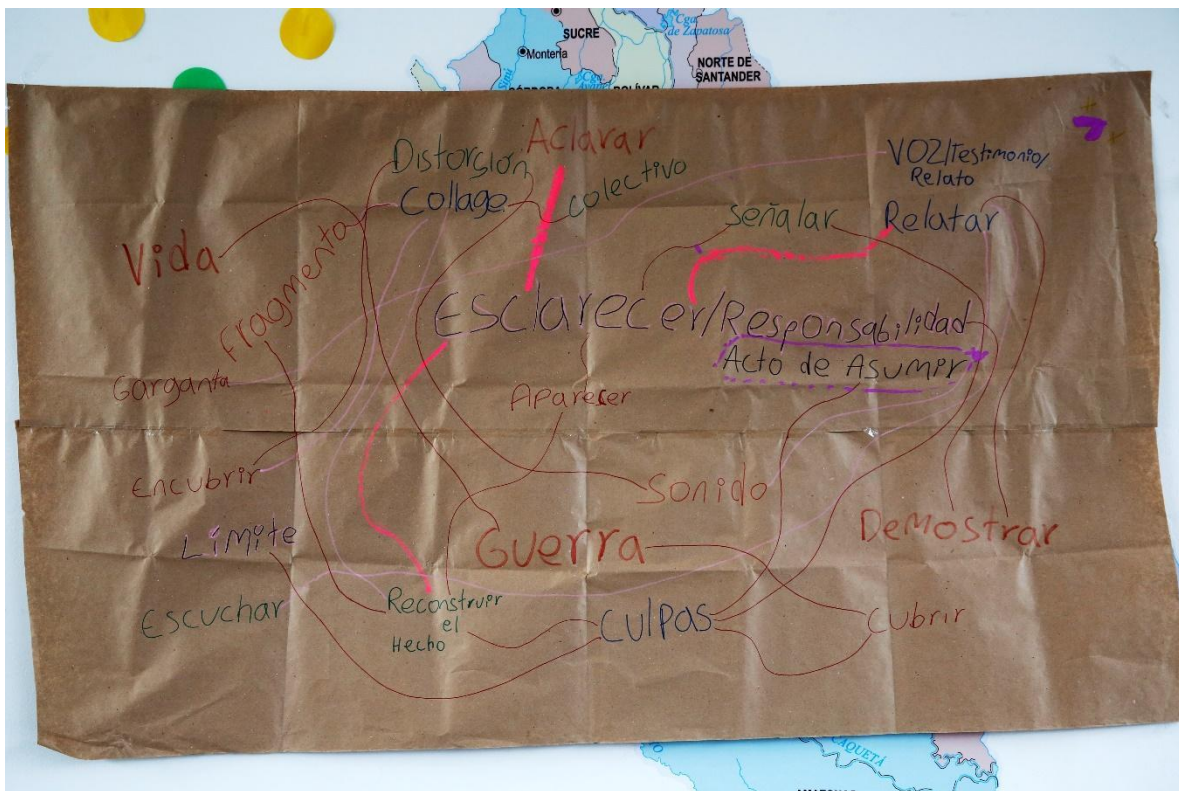 SUCRE
Montería
Cga
de Zapatosa
NORTE DE
SANTANDER
BOLÍVAR
Distorsión
Aclarar
Collage
colectivo
VOZ/Testimonio/
Relato
Señalar
Relatar
Vida
Fragmentar
Esclarecer/Responsabilidad
Acto de Asumir
Garganta
Aparecer
Encubrir
Sonido
Límite
Guerra
Demostrar
Escuchar
Reconstruir
el
Hecho
Culpas
Cubrir
CAQUETÁ